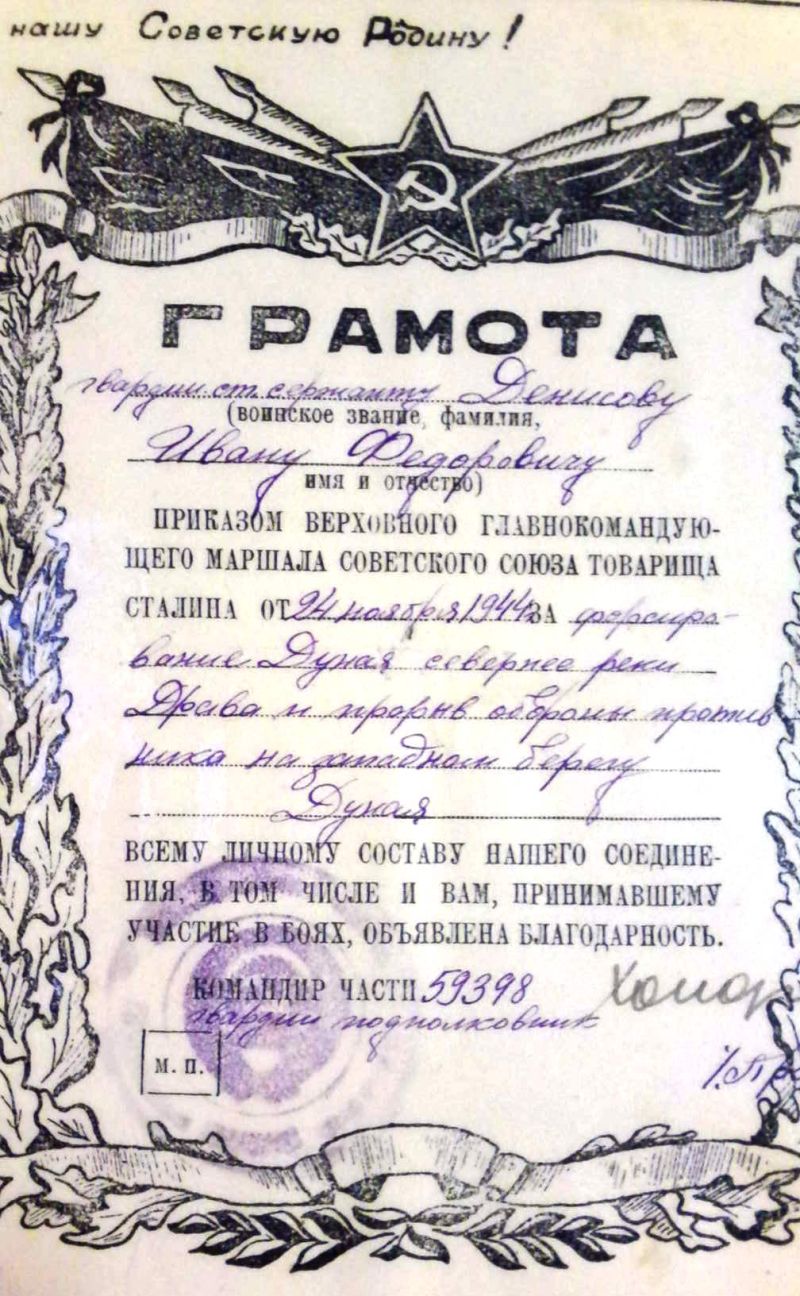 нашу Советскую Родину!
ГРАМОТА
гвардии ст. сержанту Денисову
(воинское звание, фамилия,
Ивану Федоровичу
имя и отчество)
ПРИКАЗОМ ВЕРХОВНОГО ГЛАВНОКОМАНДУЮ-
ЩЕГО МАРШАЛА СОВЕТСКОГО СОЮЗА ТОВАРИЩА
СТАЛИНА ОТ 24 ноября 1944г. ЗА форсиро-
вание Дуная севернее реки
Драва и прорыв обороны против
ника на западном берегу
Дуная
ВСЕМУ ЛИЧНОМУ СОСТАВУ НАШЕГО СОЕДИНЕ-
НИЯ, В ТОМ ЧИСЛЕ И ВАМ, ПРИНИМАВШЕМУ
УЧАСТИЕ В БОЯХ, ОБЪЯВЛЕНА БЛАГОДАРНОСТЬ.
КОМАНДИР ЧАСТИ 59398
гвардии подполковник
М. П.